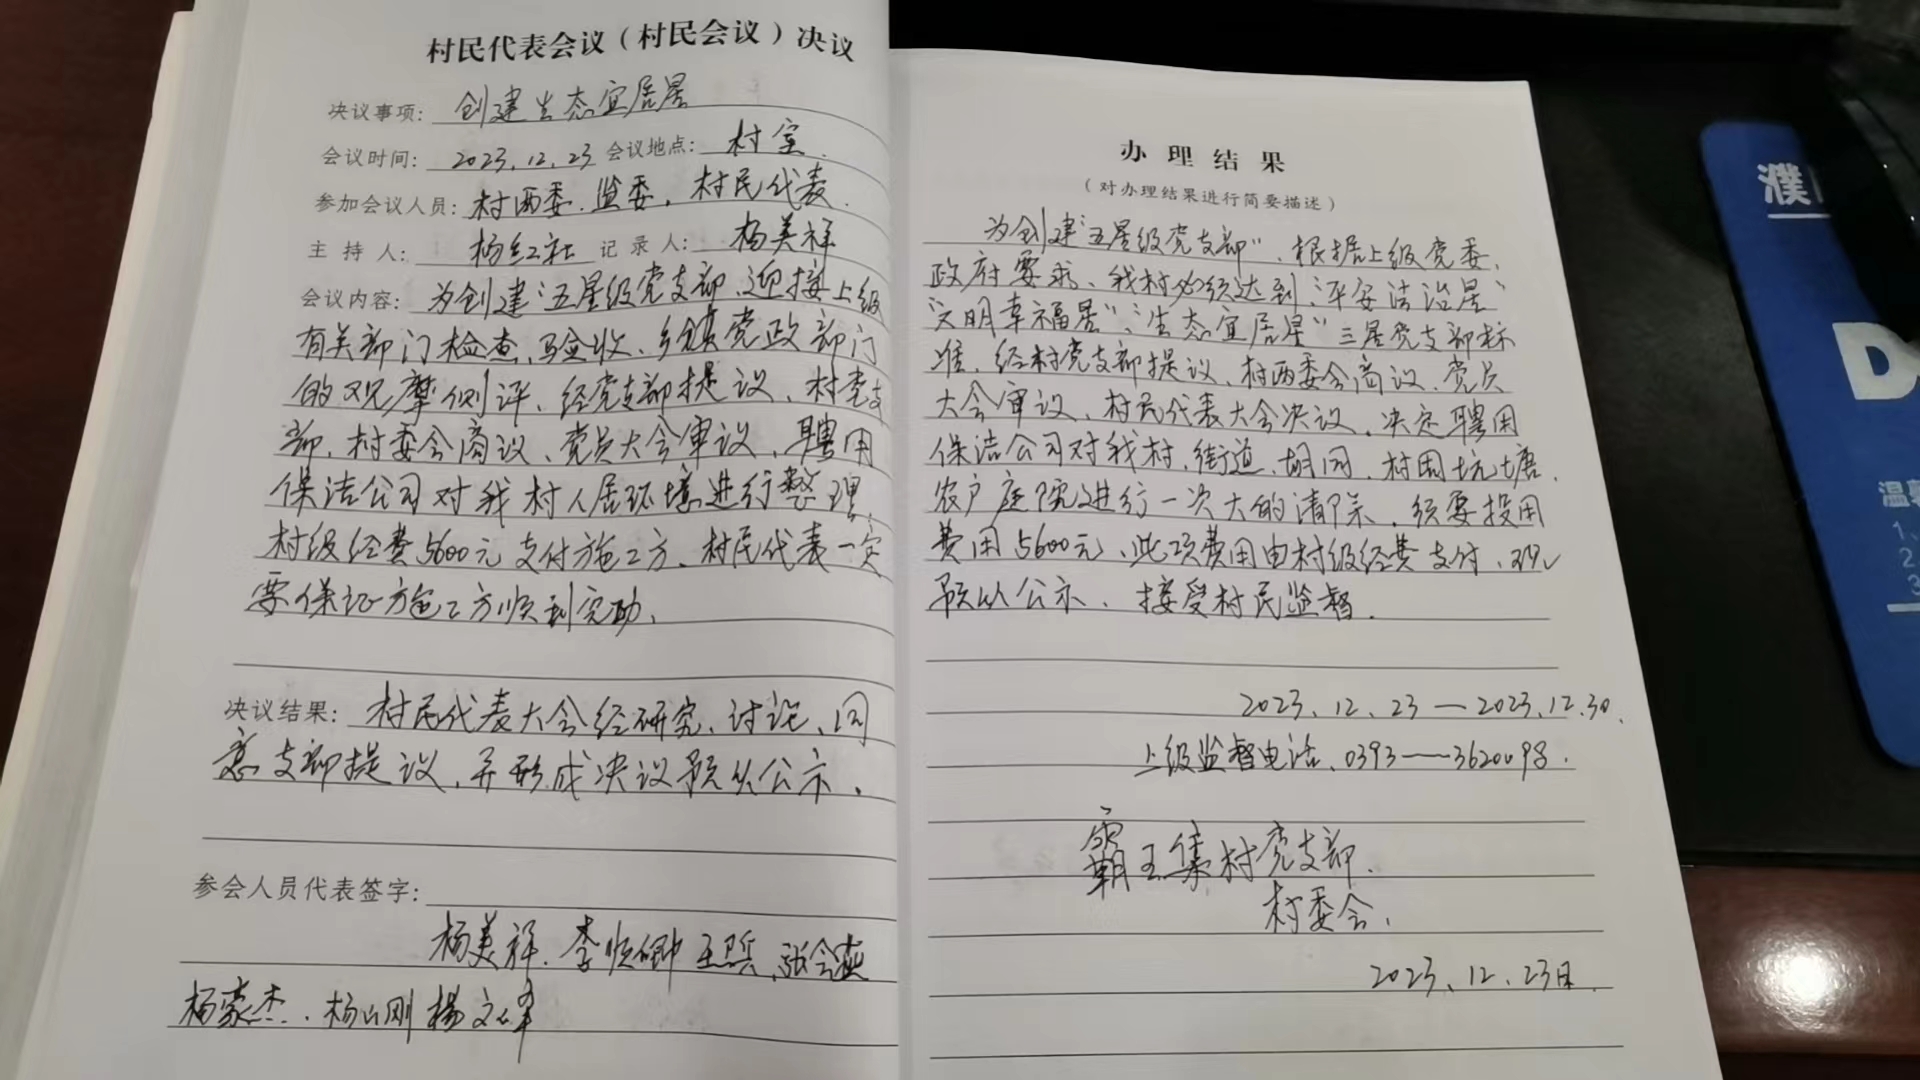 村民代表会议（村民会议）决议
决议事项：创建生态宜居星
会议时间：2023.12.23 会议地点：村室.
参加会议人员：村两委.监委,村民代表.
主持人：杨红社 记录人：杨美祥
会议内容：为创建"五星级党支部、迎接上级
有关部门检查、验收、乡镇党政部门
的观摩侧评、经党支部提议、村党支
部,村委会商议、党员大会审议、聘用
保洁公司对我村人居环境进行整理,
村级经费5600元支付施工方、村民代表一定
要保证施工方顺利完助、
决议结果：村民代表大会经研究、讨论、同
意支部提议,并形成决议预以公示.
参会人员代表签字：
杨美祥.李顺卿 王兵、张会燕
杨豪杰.杨山刚 楊文峰
办理结果
（对办理结果进行简要描述）
为创建"五星级党支部",根据上级党委、
政府要求、我村必须达到"平安法治星"
"文明幸福星"、"生态宜居星"三星党支部标
准、经村党支部提议、村两委会商议、党员
大会审议、村民代表大会决议,决定聘用
保洁公司对我村,街道、胡同,村周坑塘、
农户庭院进行一次大的清除,须要投用
费用5600元、此项费用由村级经费支付、现
预以公示、接受村民监督.
2023.12.23—2023.12.30.
上级监督电话、0393——3620098.
霸王集村党支部.
村委会、
2023、12、23日.
濮
D
温
1、
2
3